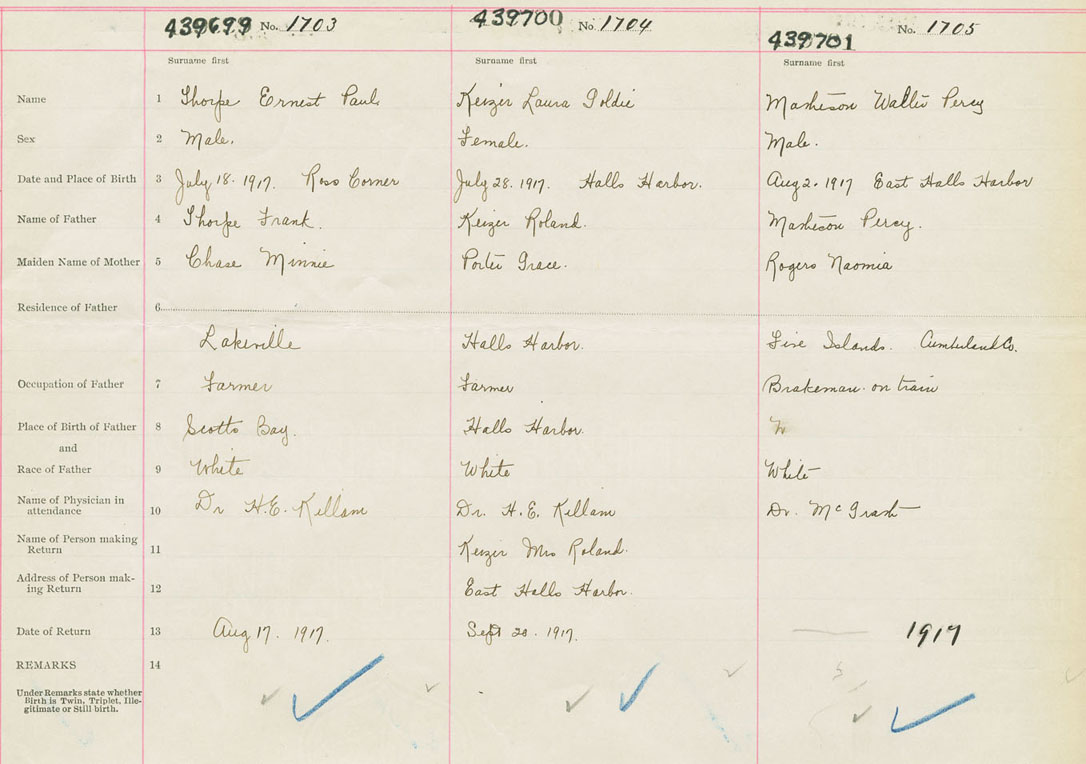 439699 No. 1703
439700 No. 1704
439701 No. 1705
Surname first Surname first Surname first
Name 1 Thorpe Ernest Paul Keizer Laura Goldie Matheson Walter Percy
Sex 2 Male. Female. Male.
Date and Place of Birth 3 July 18. 1917. Ross Corner July 28. 1917. Halls Harbor. Aug 2. 1917 East Halls Harbor
Name of Father 4 Thorpe Frank. Keizer Roland. Matheson Percy.
Maiden Name of Mother 5 Chase Minnie Porter Grace. Rogers Naomia
Residence of Father 6
Lakeville Halls Harbor. Five Islands. Cumberland Co.
Occupation of Father 7 Farmer Farmer Brakeman on train
Place of Birth of Father 8 Scotts Bay. Halls Harbor.
and
Race of Father 9 White White White
Name of Physician in
attendance 10 Dr H.E. Killam Dr. H. E. Killam Dr. McGrath
Name of Person making
Return 11 Keizer Mrs Roland.
Address of Person mak-
ing Return 12 East Halls Harbor.
Date of Return 13 Aug 17. 1917. Sept 20. 1917. 1917
REMARKS 14
Under Remarks state whether
Birth is Twin, Triplet, Ille-
gitimate or Still birth.